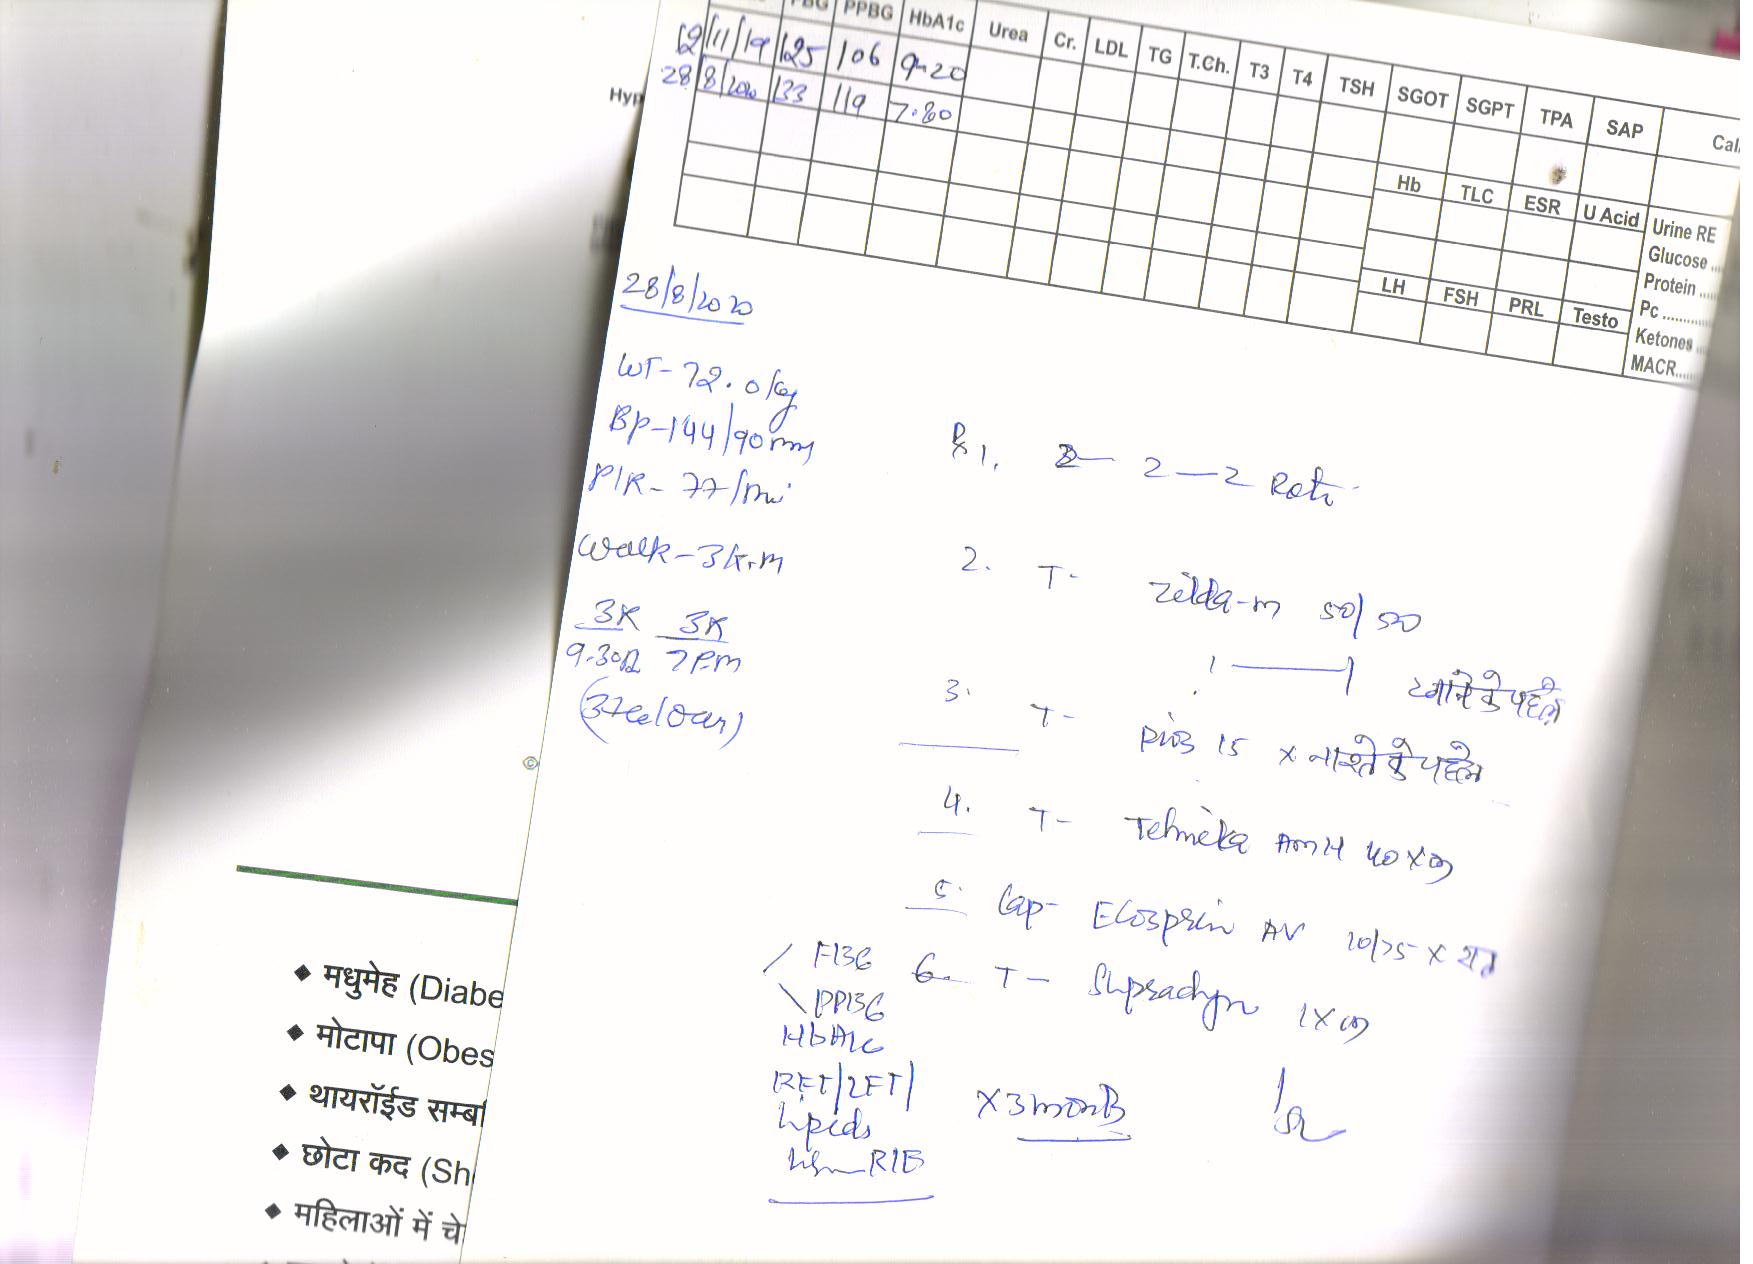 PPBG HbA1c Urea Cr. LDL TG T.Ch. T3 T4 TSH SGOT SGPT TPA SAP
12/11/19 125 106 9.20
28/8/2020 133 119 7.80
Hb TLC ESR U Acid
LH FSH PRL Testo
Urine RE
Glucose ...
Protein .....
Pc ............
Ketones ...
MACR.....
Hyp
28/8/2020
WT- 72.0 kg
BP-144/90 mm
P/R- 77/mi
Walk-3 k.m
3K 3K
9.30 7 P.m
1. 2— 2—2 Roti
2. T- Zilda-m 50/500
1 —— 1 खाने के पहले
3. T- 15 x नाश्ते के पहले
4. T- Telmeka AMH 40 x
5. Cap- Ecosprin AV 10/75 x
6. T- 1 x
FBG
PPBG
HbA1c
RFT/LFT/
Lipids
R/E
x 3 month
©
◆ मधुमेह (Diabe
◆ मोटापा (Obes
◆ थायरॉईड सम्ब
◆ छोटा कद (Sh
◆ महिलाओं में चे